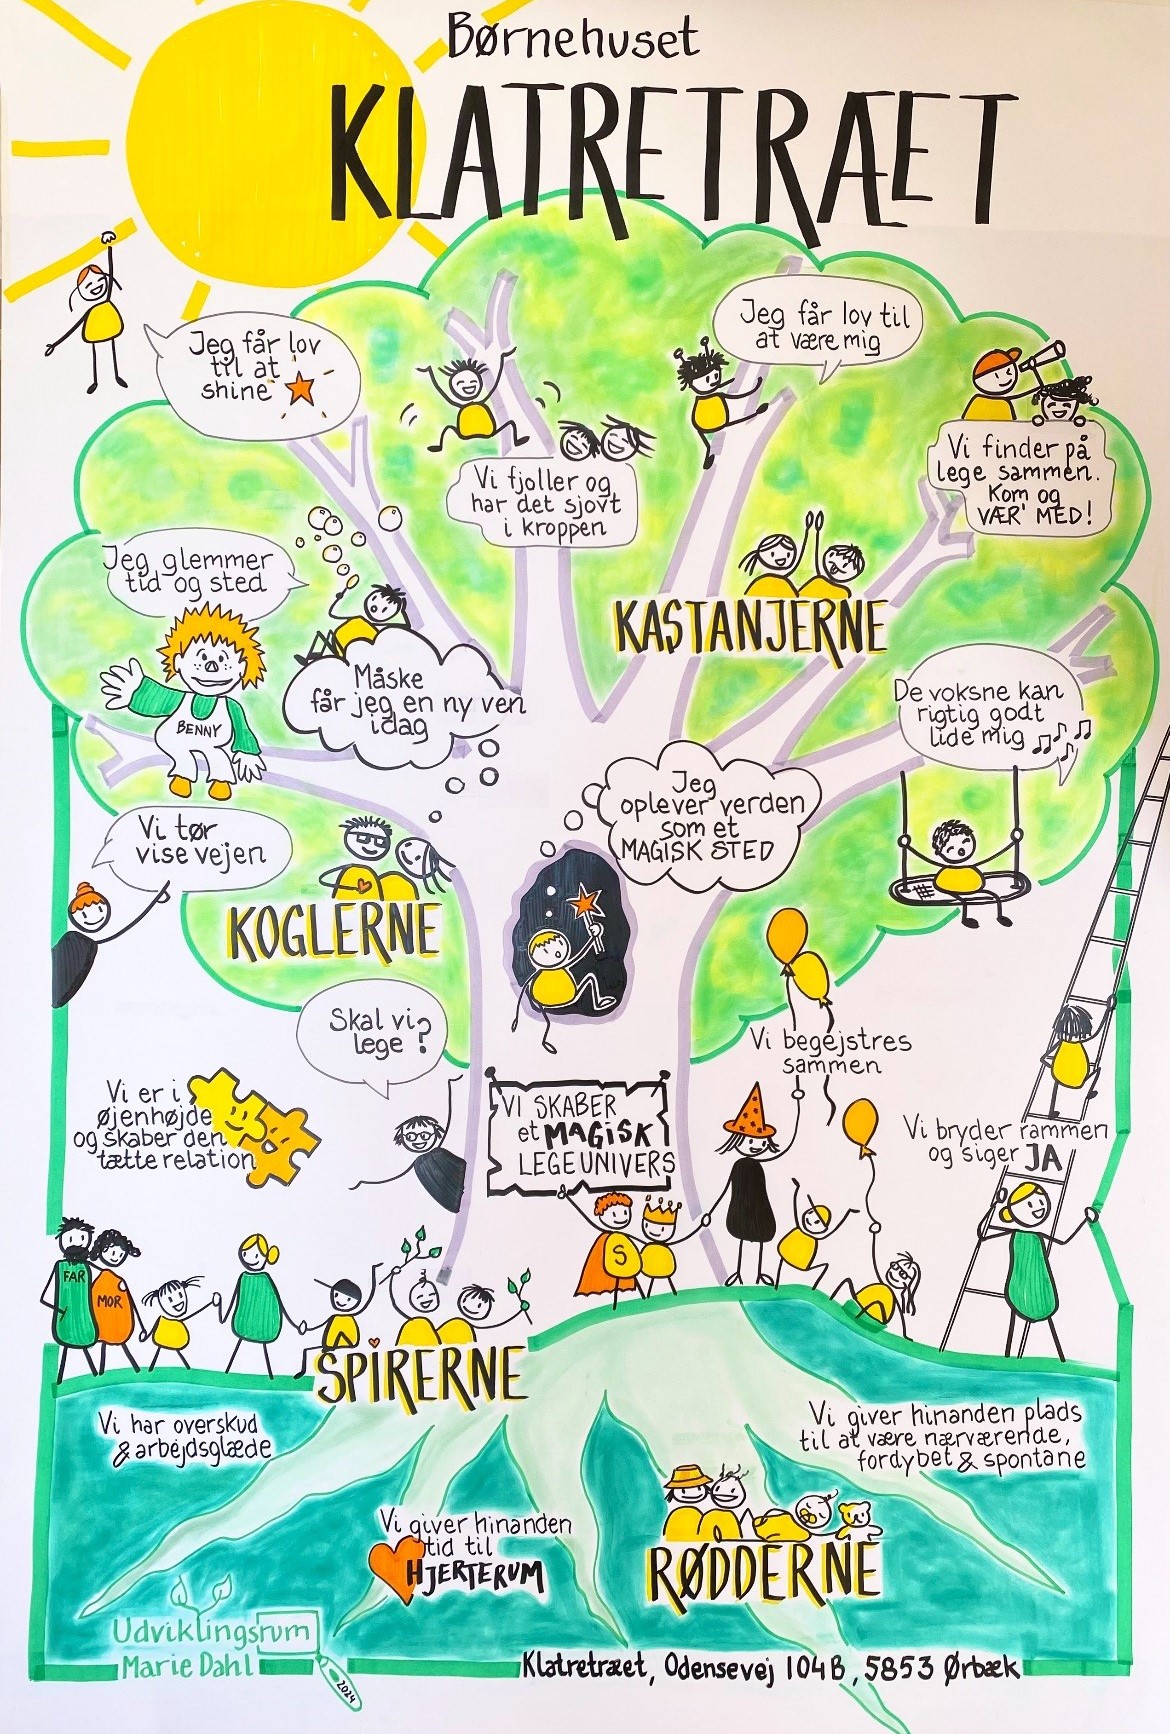 Børnehuset
KLATRETRÆET
Jeg får lov
til at
shine
Jeg får lov til
at være mig
Vi fjoller og
har det sjovt
i kroppen
Vi finder på
lege sammen.
Kom og
VÆR' MED!
Jeg glemmer
tid og sted
BENNY
Måske
får jeg en ny ven
idag
KASTANJERNE
De voksne kan
rigtig godt
lide mig
Jeg
oplever verden
som et
MAGISK STED
Vi tør
vise vejen
KOGLERNE
Skal vi
lege?
Vi er i
øjenhøjde
og skaber den
tætte relation
VI SKABER
et MAGISK
LEGEUNIVERS
Vi begejstres
sammen
Vi bryder rammen
og siger JA
FAR
MOR
S
SPIRERNE
Vi har overskud
& arbejdsglæde
Vi giver hinanden plads
til at være nærværende,
fordybet & spontane
Vi giver hinanden
tid til
HJERTERUM
RØDDERNE
Udviklingsrum
Marie Dahl
2024
Klatretræet, Odensevej 104B, 5853 Ørbæk